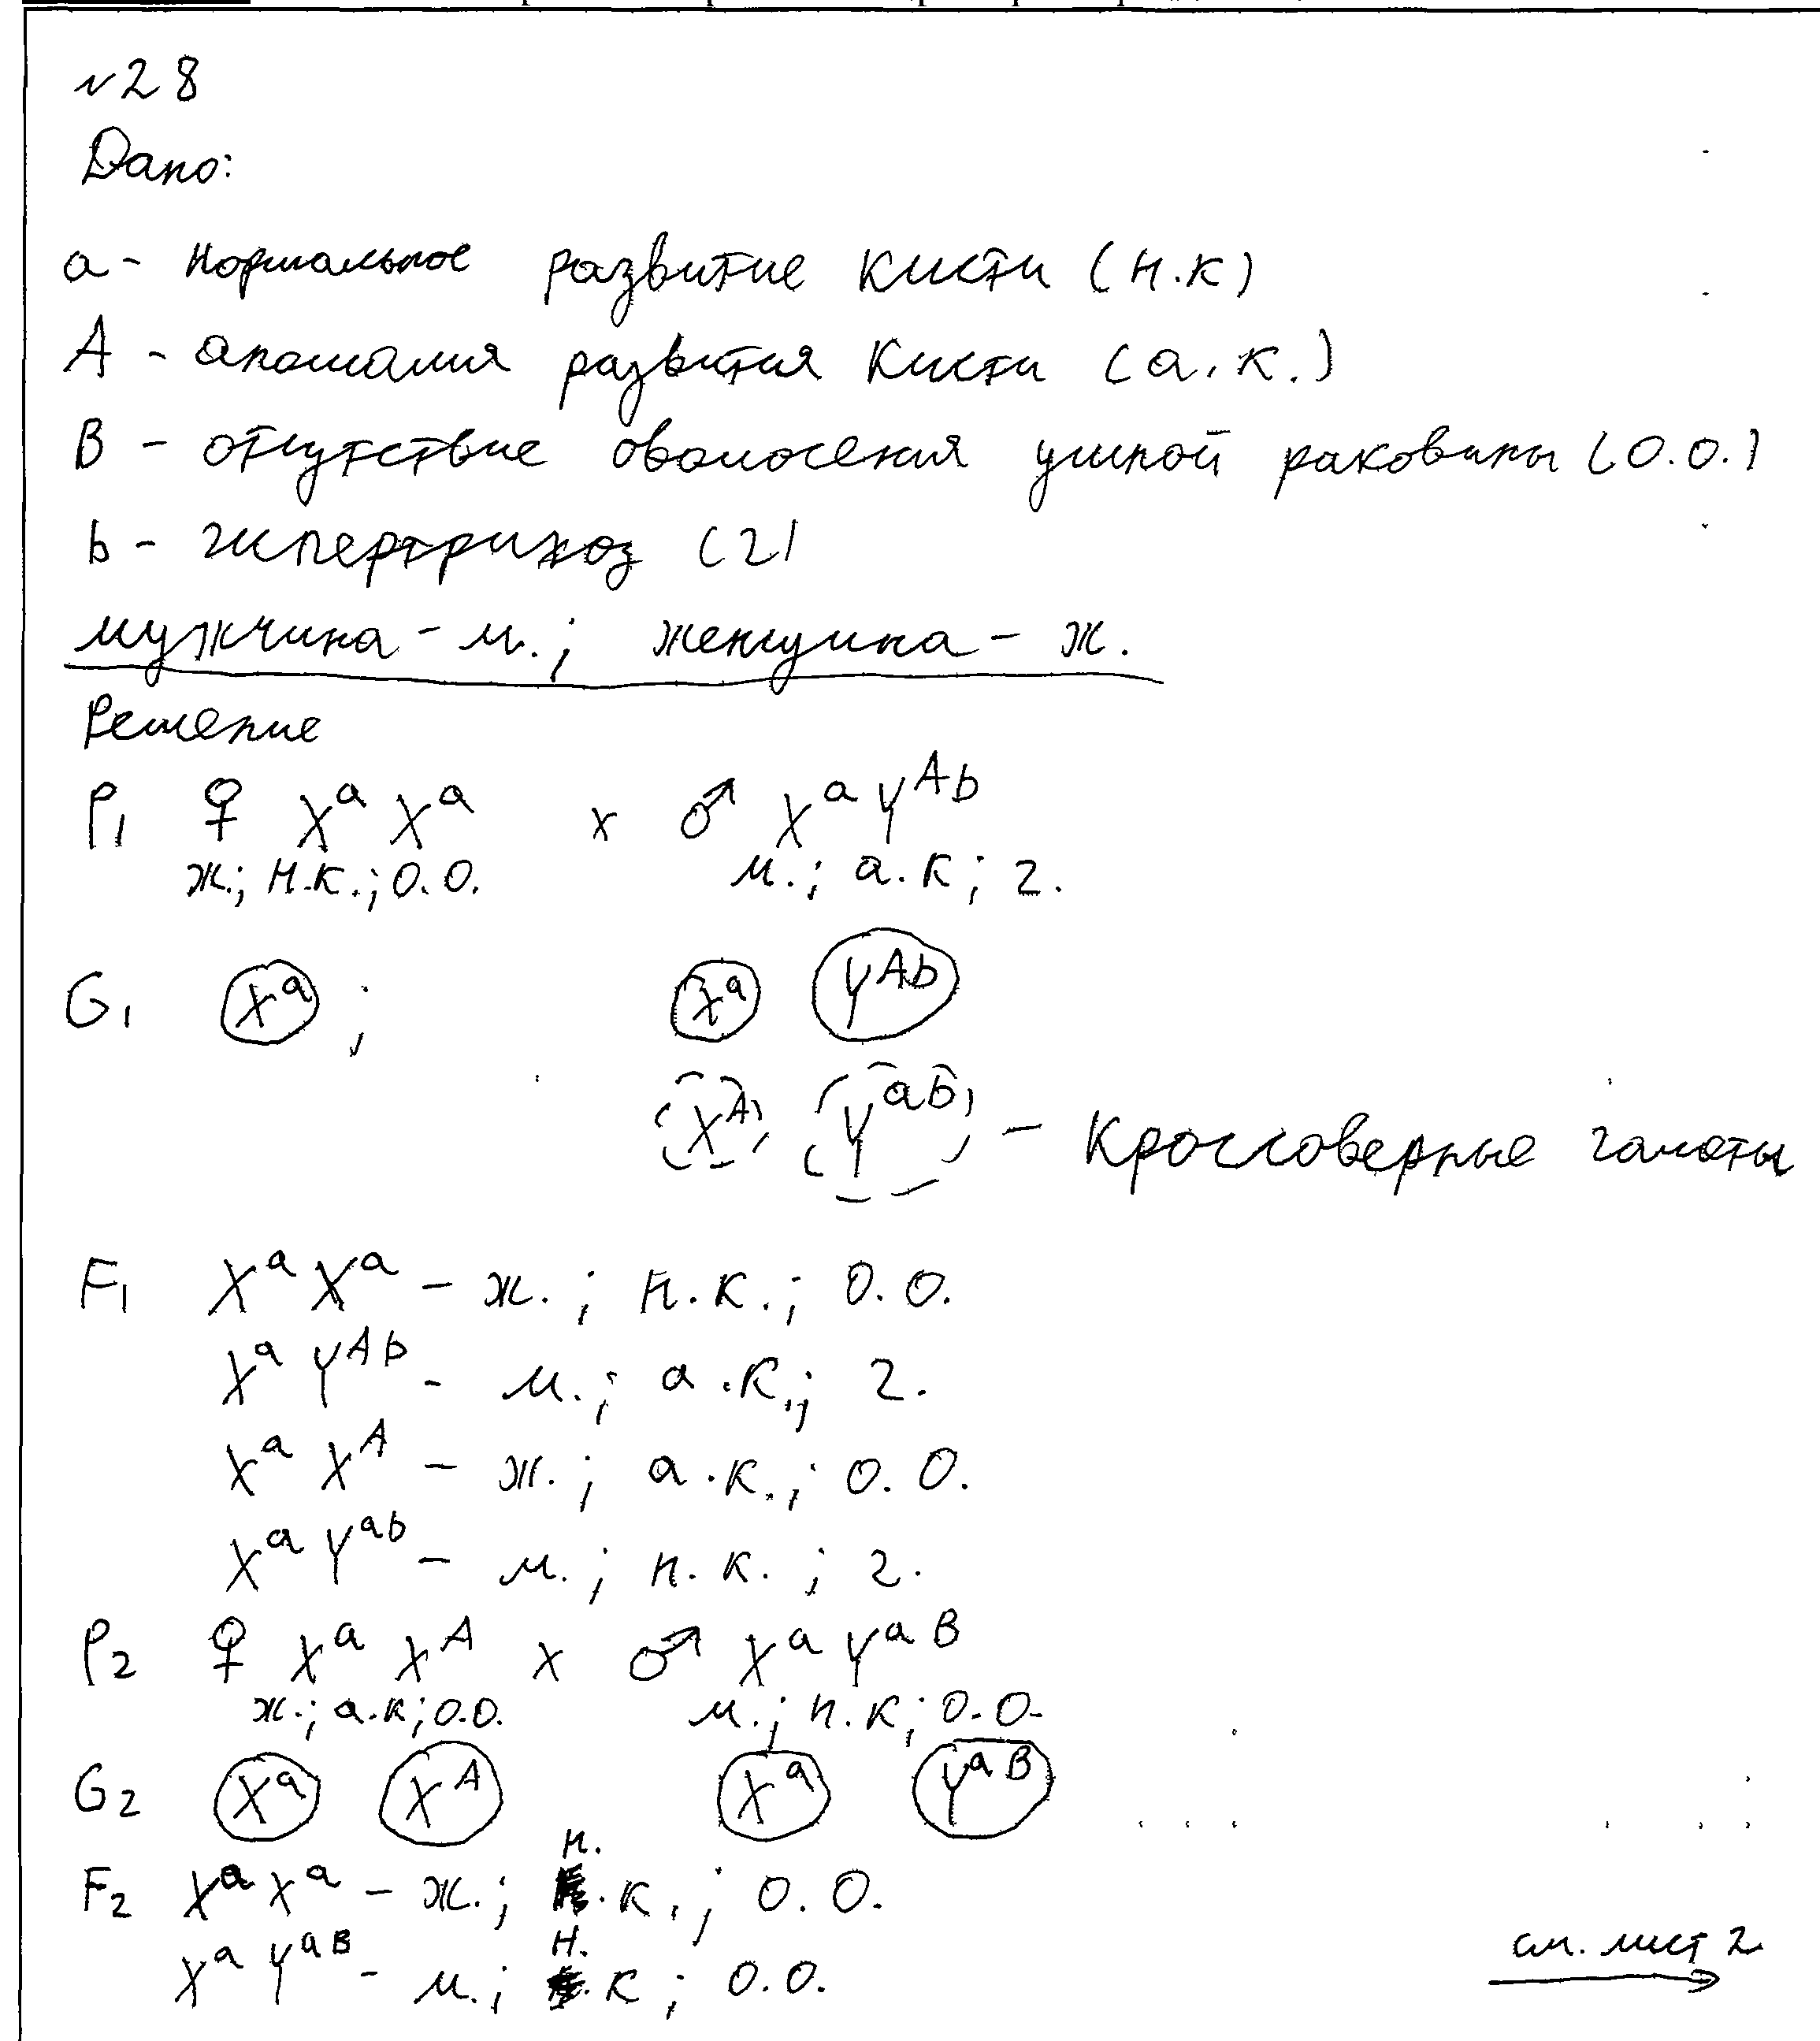 №28
Дано:
a - нормальное развитие кисти (н.к)
A - аномалия развития кисти (а.к.)
B - отсутствие оволосения ушной раковины (О.О.)
b - гипертрихоз (г)
мужчина - м.; женщина - ж.
Решение
P₁ ♀ XᵃXᵃ x ♂ XᵃYᴬᵇ
ж.; н.к.; О.О. м.; а.к; г.
G₁ Xᵃ ; Xᵃ Yᴬᵇ
Xᴬ Yᵃᵇ - кроссоверные гаметы
F₁ XᵃXᵃ - ж.; н.к.; О.О.
XᵃYᴬᵇ - м.; а.к.; г.
XᵃXᴬ - ж.; а.к.; О.О.
XᵃYᵃᵇ - м.; н.к.; г.
P₂ ♀ XᵃXᴬ x ♂ XᵃYᵃᴮ
ж.; а.к; О.О. м.; н.к; О.О.
G₂ Xᵃ Xᴬ Xᵃ Yᵃᴮ
F₂ XᵃXᵃ - ж.; н.к.; О.О.
XᵃYᵃᴮ - м.; н.к; О.О.
см. лист 2